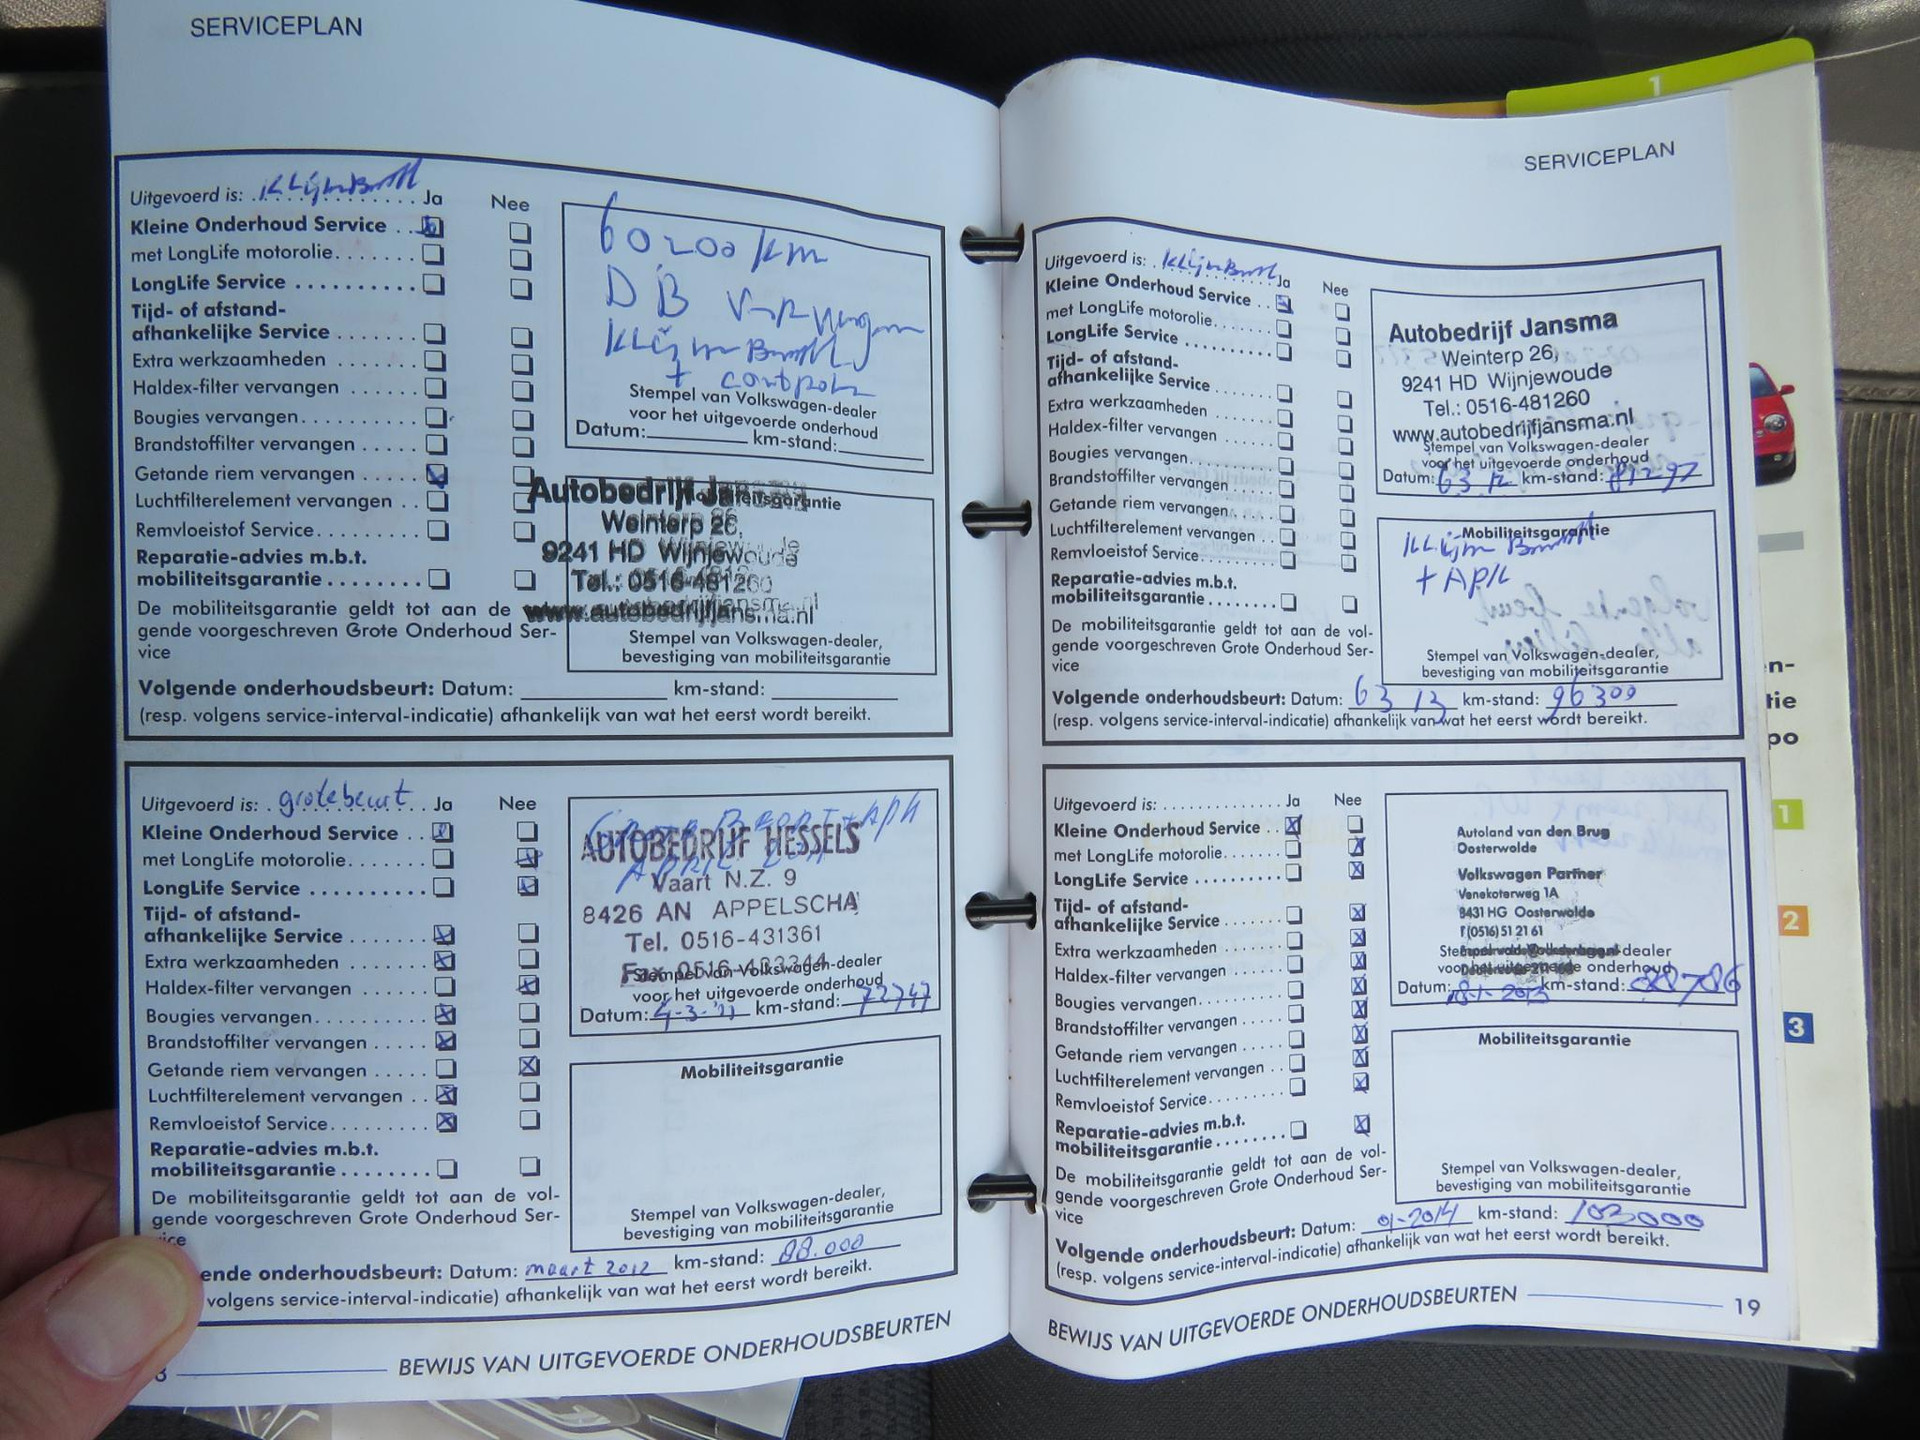 SERVICEPLAN
Uitgevoerd is: Kleijn Beurt Ja Nee
Kleine Onderhoud Service
met LongLife motorolie
LongLife Service
Tijd- of afstand-
afhankelijke Service
Extra werkzaamheden
Haldex-filter vervangen
Bougies vervangen
Brandstoffilter vervangen
Getande riem vervangen
Luchtfilterelement vervangen
Remvloeistof Service
Reparatie-advies m.b.t.
mobiliteitsgarantie
De mobiliteitsgarantie geldt tot aan de
gende voorgeschreven Grote Onderhoud Ser-
vice
60200 km
DB
+ controle
Stempel van Volkswagen-dealer
voor het uitgevoerde onderhoud
Datum: km-stand:
Autobedrijf Jansma
Weinterp 26,
9241 HD Wijnjewoude
Tel.: 0516-481260
www.autobedrijfjansma.nl
Stempel van Volkswagen-dealer,
bevestiging van mobiliteitsgarantie
Volgende onderhoudsbeurt: Datum: km-stand:
(resp. volgens service-interval-indicatie) afhankelijk van wat het eerst wordt bereikt.
Uitgevoerd is: grote beurt Ja Nee
Kleine Onderhoud Service
met LongLife motorolie
LongLife Service
Tijd- of afstand-
afhankelijke Service
Extra werkzaamheden
Haldex-filter vervangen
Bougies vervangen
Brandstoffilter vervangen
Getande riem vervangen
Luchtfilterelement vervangen
Remvloeistof Service
Reparatie-advies m.b.t.
mobiliteitsgarantie
De mobiliteitsgarantie geldt tot aan de vol-
gende voorgeschreven Grote Onderhoud Ser-
vice
AUTOBEDRIJF HESSELS
Vaart N.Z. 9
8426 AN APPELSCHA
Tel. 0516-431361
Fax 0516-433344
Stempel van Volkswagen-dealer
voor het uitgevoerde onderhoud
Datum: 4-3-'11 km-stand: 72747
Mobiliteitsgarantie
Stempel van Volkswagen-dealer,
bevestiging van mobiliteitsgarantie
ende onderhoudsbeurt: Datum: maart 2012 km-stand: 88.000
volgens service-interval-indicatie) afhankelijk van wat het eerst wordt bereikt.
BEWIJS VAN UITGEVOERDE ONDERHOUDSBEURTEN
SERVICEPLAN
Uitgevoerd is: Kleijn Beurt Ja Nee
Kleine Onderhoud Service
met LongLife motorolie
LongLife Service
Tijd- of afstand-
afhankelijke Service
Extra werkzaamheden
Haldex-filter vervangen
Bougies vervangen
Brandstoffilter vervangen
Getande riem vervangen
Luchtfilterelement vervangen
Remvloeistof Service
Reparatie-advies m.b.t.
mobiliteitsgarantie
De mobiliteitsgarantie geldt tot aan de vol-
gende voorgeschreven Grote Onderhoud Ser-
vice
Autobedrijf Jansma
Weinterp 26,
9241 HD Wijnjewoude
Tel.: 0516-481260
www.autobedrijfjansma.nl
Stempel van Volkswagen-dealer
voor het uitgevoerde onderhoud
Datum: 03 12 km-stand: 81297
Mobiliteitsgarantie
Kleijn Beurt
+ APK
Stempel van Volkswagen-dealer,
bevestiging van mobiliteitsgarantie
Volgende onderhoudsbeurt: Datum: 03 13 km-stand: 96300
(resp. volgens service-interval-indicatie) afhankelijk van wat het eerst wordt bereikt.
Uitgevoerd is: Ja Nee
Kleine Onderhoud Service
met LongLife motorolie
LongLife Service
Tijd- of afstand-
afhankelijke Service
Extra werkzaamheden
Haldex-filter vervangen
Bougies vervangen
Brandstoffilter vervangen
Getande riem vervangen
Luchtfilterelement vervangen
Remvloeistof Service
Reparatie-advies m.b.t.
mobiliteitsgarantie
De mobiliteitsgarantie geldt tot aan de vol-
gende voorgeschreven Grote Onderhoud Ser-
vice
Autoland van den Brug
Oosterwolde
Volkswagen Partner
Venekoterweg 1A
8431 HG Oosterwolde
T (0516) 51 21 61
Stempel van Volkswagen-dealer
voor het uitgevoerde onderhoud
Datum: 18-1-2013 km-stand: 88786
Mobiliteitsgarantie
Stempel van Volkswagen-dealer,
bevestiging van mobiliteitsgarantie
Volgende onderhoudsbeurt: Datum: 01-2014 km-stand: 103000
(resp. volgens service-interval-indicatie) afhankelijk van wat het eerst wordt bereikt.
BEWIJS VAN UITGEVOERDE ONDERHOUDSBEURTEN 19
1
en-
tie
po
1
2
3